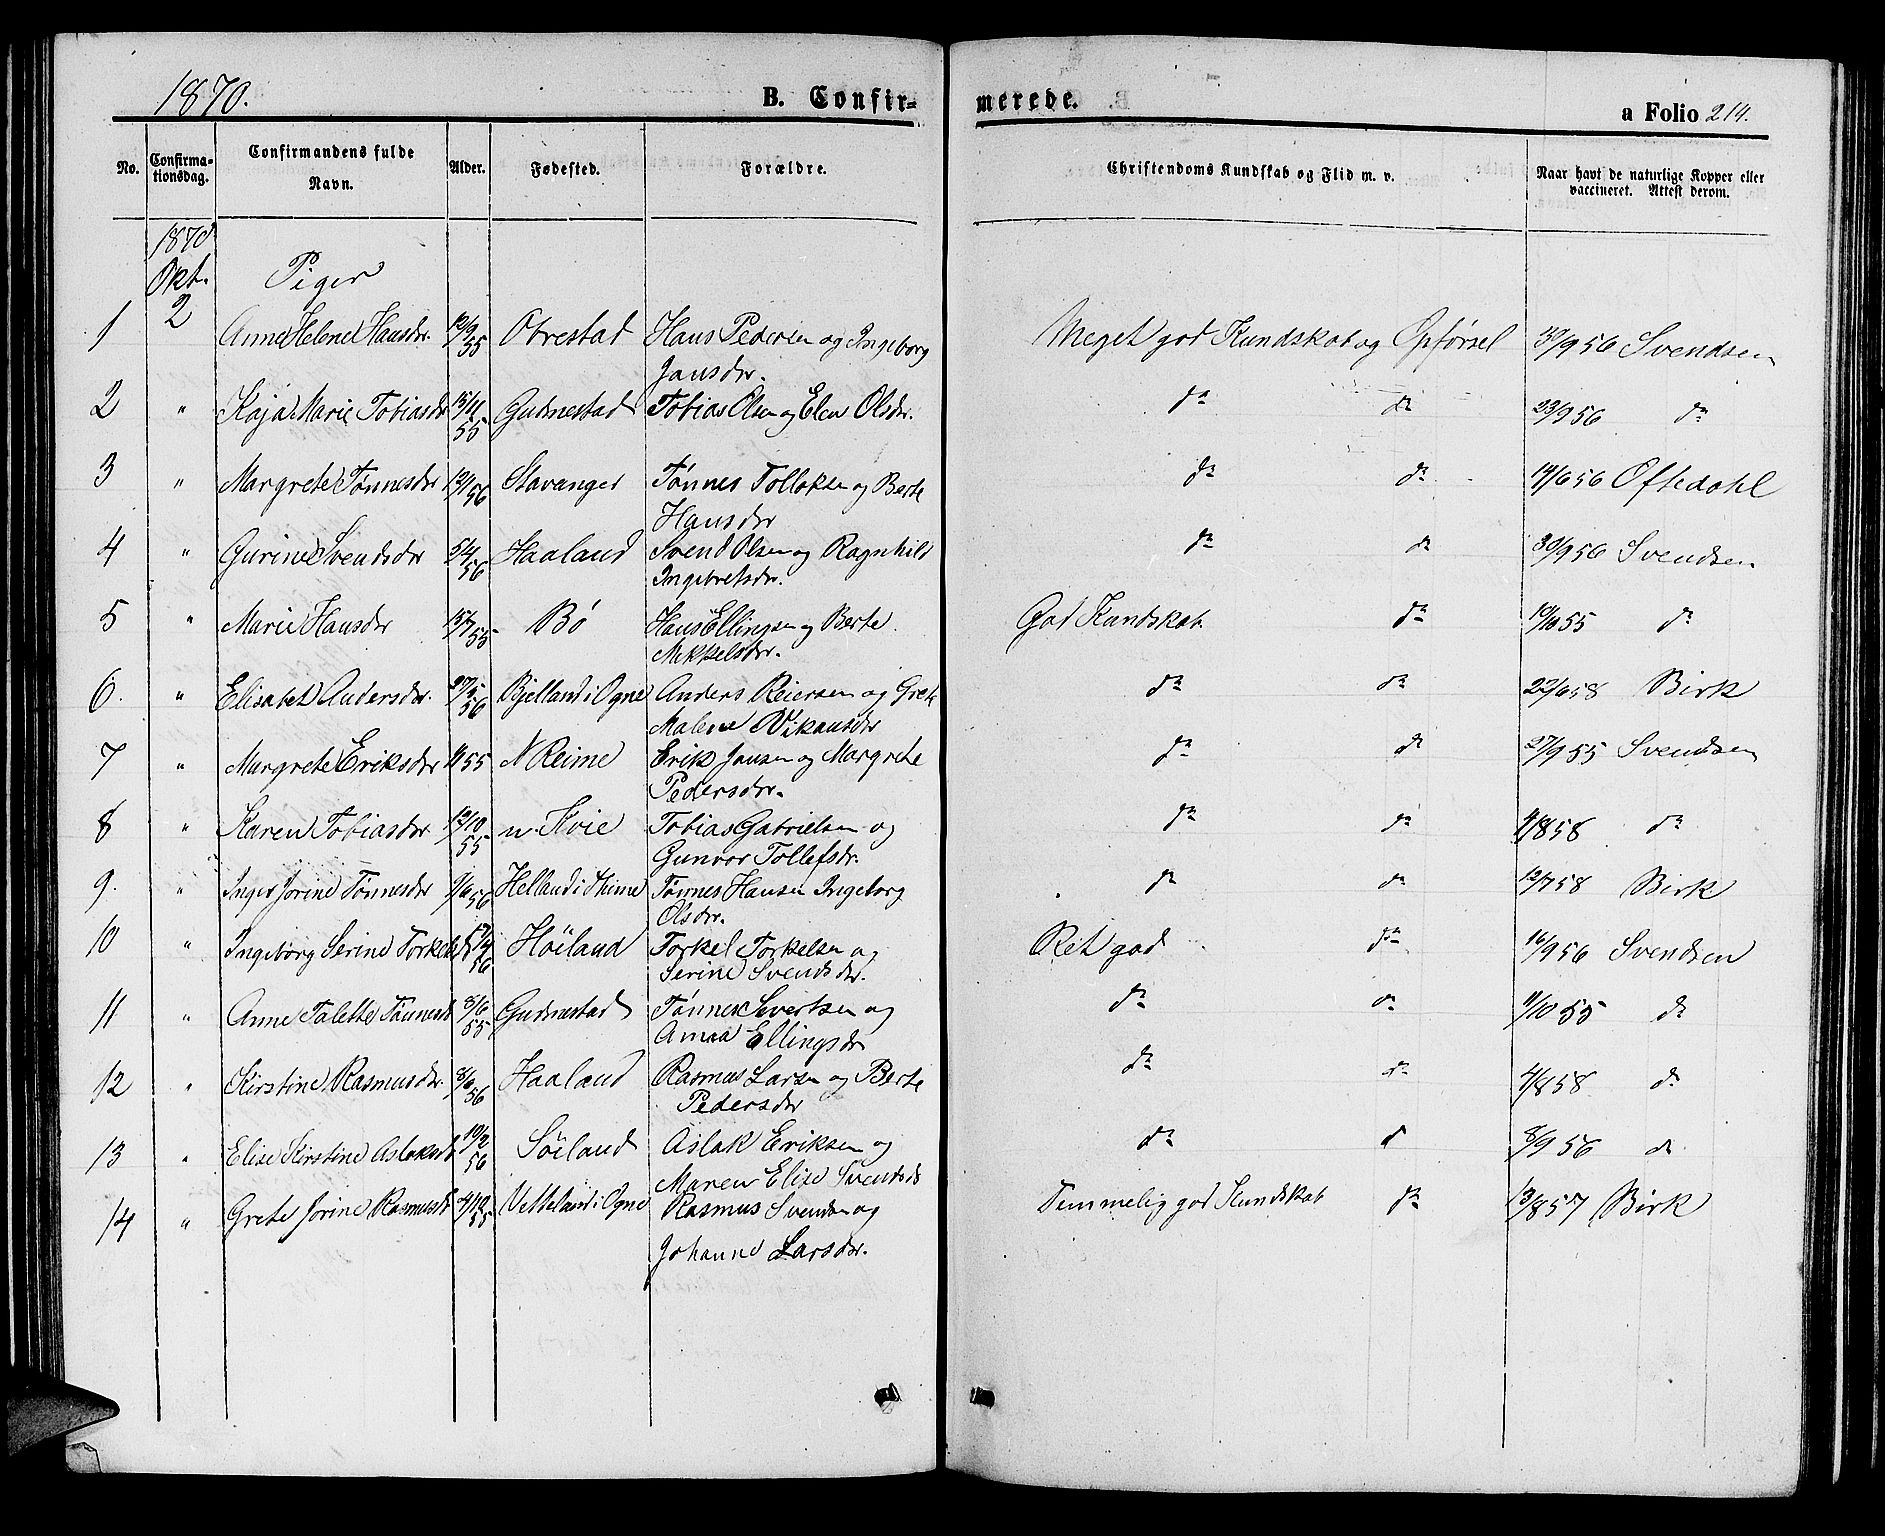 1870.
B. Confir-
merede.
a Folio 214.
No.
Confirma-
tionsdag.
Confirmandens fulde
Navn.
Alder.
Fødested.
Forældre.
Christendoms Kundskab og Flid m. v.
Naar havt de naturlige Kopper eller
vaccineret. Attest derom.
1870
Okt. Piger
1 2 Anne Helene Hansdr. 12/9 55 Obrestad Hans Pedersen og Ingeborg Meget god Kundskab og Opførsel 30/9 56 Svendsen
Jansdr.
2 " Kaja Marie Tobiasdr 15/11 55 Gudmestad Tobias Olsen og Elen Olsdr. do do 23/9 56 do
3 " Margrete Tønnesdr 12/1 56 Stavanger Tønnes Tollaksen og Berte do do 14/6 56 Oftedahl
Hansdr
4 " Gurine Svendsdr 5/4 56 Haaland Svend Olsen og Ragnhild do do 30/9 56 Svendsen
Ingebretsdr.
5 " Marie Hansdr 15/7 55 Bö Hans Ellingsen og Berte God Kundskab. do 19/10 55 do
Mikkelsdr.
6. " Elisabet Andersdr. 27/5 56 Bjelland i Ogne Anders Reiersen og Grete do do 22/6 58 Birk
Malene Vikansdr
7 " Margrete Eriksdr 55 N Reime Erik Jansen og Margrete do do 27/9 55 Svendsen
Pedersdr.
8 " Karen Tobiasdr 12/10 55 n. Kvie Tobias Gabrielsen og do do 4/8 58 do
Gunvor Tollefsdr.
9. " Inger Jorine Tønnesdr 9/6 56 Helland i Thime Tønnes Hansen Ingeborg do do 12/7 58 Birk
Olsdr.
10 " Ingeborg Serine Torkelsd 17/4 56 Höiland Torkel Torkelsen og Ret god do 16/9 56 Svendsen
Serine Svendsdr.
11 " Anne Talette Tönnesd 8/6 55 Gudmestad Tønnes Sivertsen og do do 11/10 55 do
Amaa Ellingsdr
12 " Kirstine Rasmusdr. 8/6 56 Haaland Rasmus Larsen og Berte do do 4/8 58 do
Pedersdr
13 " Elise Kirstine Aslaksd 19/2 56 Söiland Aslak Eriksen og do d 8/9 56 do
Maren Elise Svendsd
14 " Grete Jorine Rasmusdr 4/12 55 Vetteland i Ogne Rasmus Svendsen og Temmelig god Kundskab do 13/8 57 Birk
Johanne Larsdr.